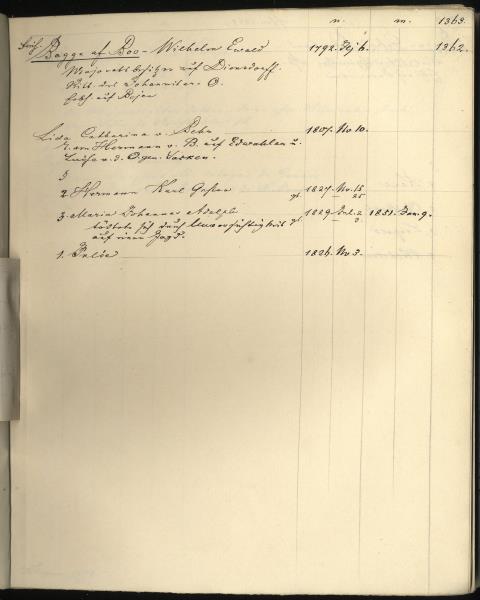 n. m. 1363.
Frhr. Bagge af Boo - Wilhelm Ewald 1792. 6. 1362.
Majoratsbesitzer auf Diensdorff.
Ritt. des Johanniter. O.
Erbh. auf Bojen
Lida Catharina v. Behr 1807. No 10.
T. v. Hermann v. B. auf Edwahlen u.
Luise v. d. O. gen. Sacken.
3
2. Hermann Karl Gustav gt. 1827. Nv. 15
25
3. Maria Johannes Adolph gt. 1829 2 1851. Jan. 9.
tödtete sich durch Unvorsichtigkeit
auf einer Jagd.
1. Julie 1824. Nv 3.